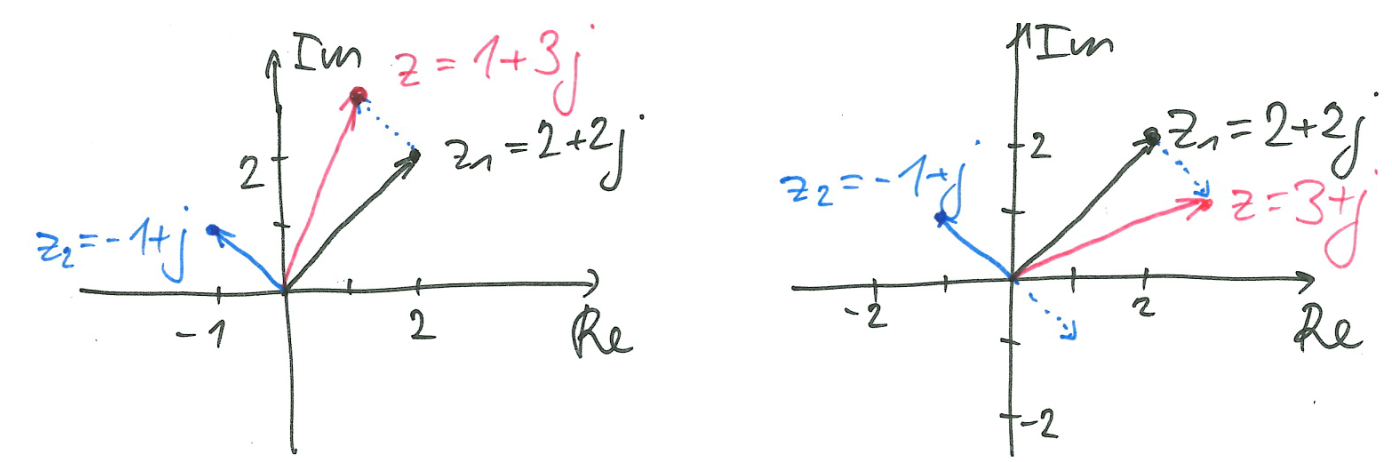 Im
z = 1+3j
z₁ = 2+2j
2
z₂ = -1+j
-1
2
Re
Im
z₁ = 2+2j
2
z₂ = -1+j
z = 3+j
-2
2
Re
-2